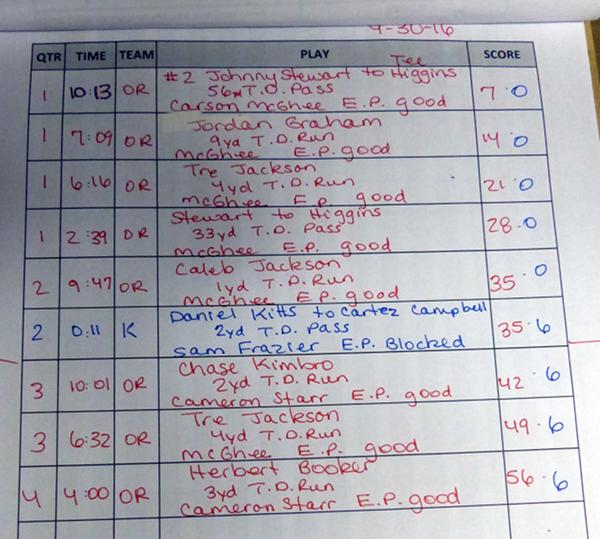 9-30-16
QTR TIME TEAM PLAY SCORE
Tee
1 10:13 OR #2 Johnny Stewart to Higgins 7-0
56yd T.D. Pass
Carson McGhee E.P. good
1 7:09 OR Jordan Graham 14 0
9yd T.D. Run
McGhee E.P. good
1 6:16 OR Tre Jackson 21 0
4yd T.D. Run
McGhee E.P. good
1 2:39 OR Stewart to Higgins 28-0
33yd T.D. Pass
McGhee E.P. good
2 9:47 OR Caleb Jackson 35 0
1yd T.D. Run
McGhee E.P. good
2 0:11 K Daniel Kitts to Cartez Campbell 35-6
2yd T.D. Pass
Sam Frazier E.P. Blocked
3 10:01 OR Chase Kimbro 42-6
2yd T.D. Run
Cameron Starr E.P. good
3 6:32 OR Tre Jackson 49-6
4yd T.D. Run
McGhee E.P. good
4 4:00 OR Herbert Booker 56-6
3yd T.D. Run
Cameron Starr E.P. good